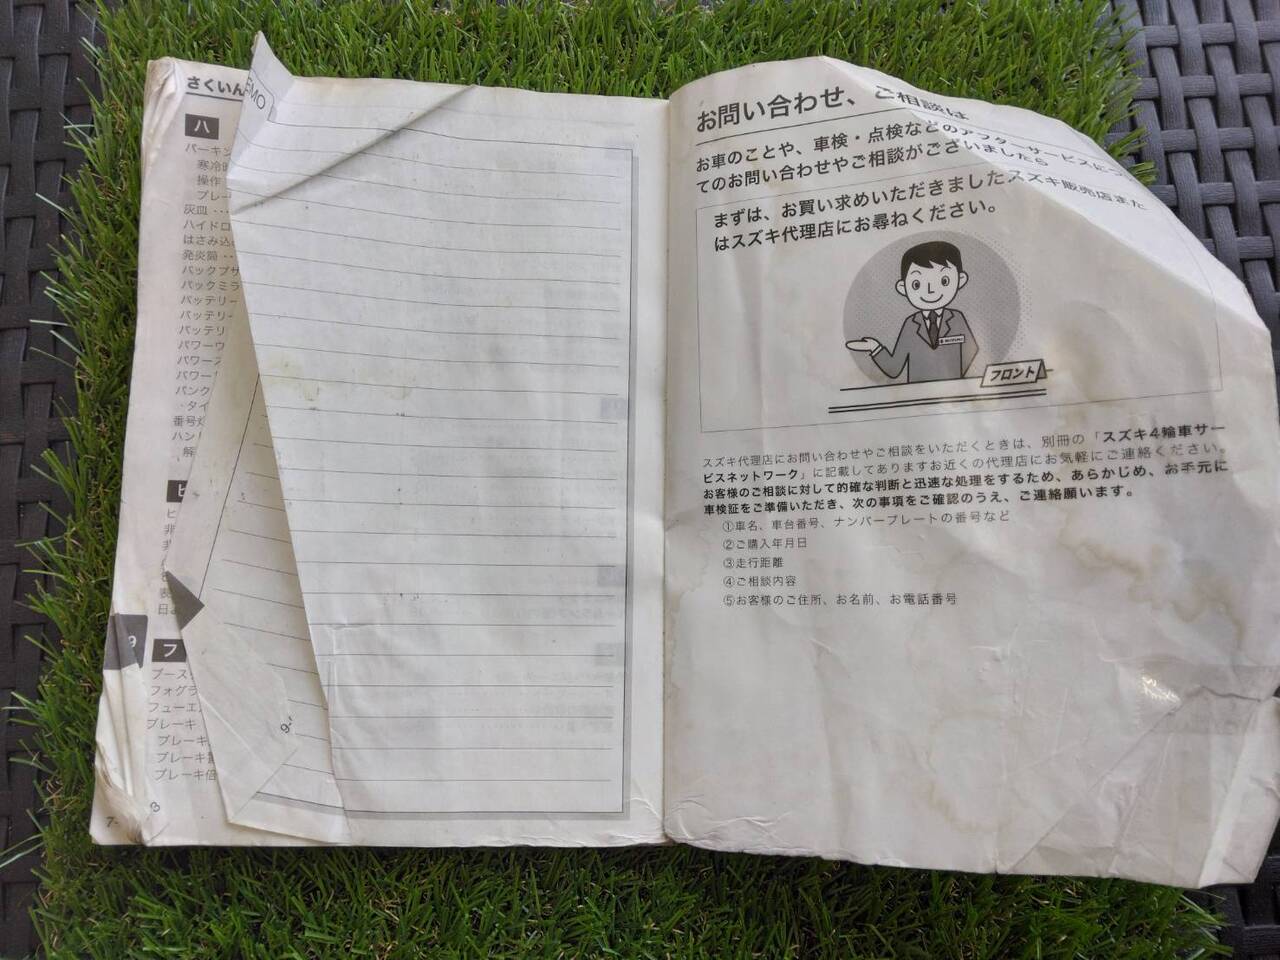 さくいん
ハ
パーキン
寒冷時
操作
ブレー
灰皿
ハイドロ
はさみ込
発炎筒
バックブザ
バックミラ
バッテリー
バッテリー
バッテリ
パワーウ
パワース
パワー
パンク
タイ
番号灯
ハン
解
ヒ
ヒ
非
非
表
日よ
9
フ
ブース
フォグラ
フューエル
ブレーキ
ブレーキ
ブレーキ
ブレーキ倍
7-
EMO
9-
お問い合わせ、ご相談は
お車のことや、車検・点検などのアフターサービスにつ
てのお問い合わせやご相談がございましたら
まずは、お買い求めいただきましたスズキ販売店また
はスズキ代理店にお尋ねください。
SUZUKI
フロント
スズキ代理店にお問い合わせやご相談をいただくときは、別冊の「スズキ4輪車サー
ビスネットワーク」に記載してありますお近くの代理店にお気軽にご連絡ください。
お客様のご相談に対して的確な判断と迅速な処理をするため、あらかじめ、お手元に
車検証をご準備いただき、次の事項をご確認のうえ、ご連絡願います。
①車名、車台番号、ナンバープレートの番号など
②ご購入年月日
③走行距離
④ご相談内容
⑤お客様のご住所、お名前、お電話番号